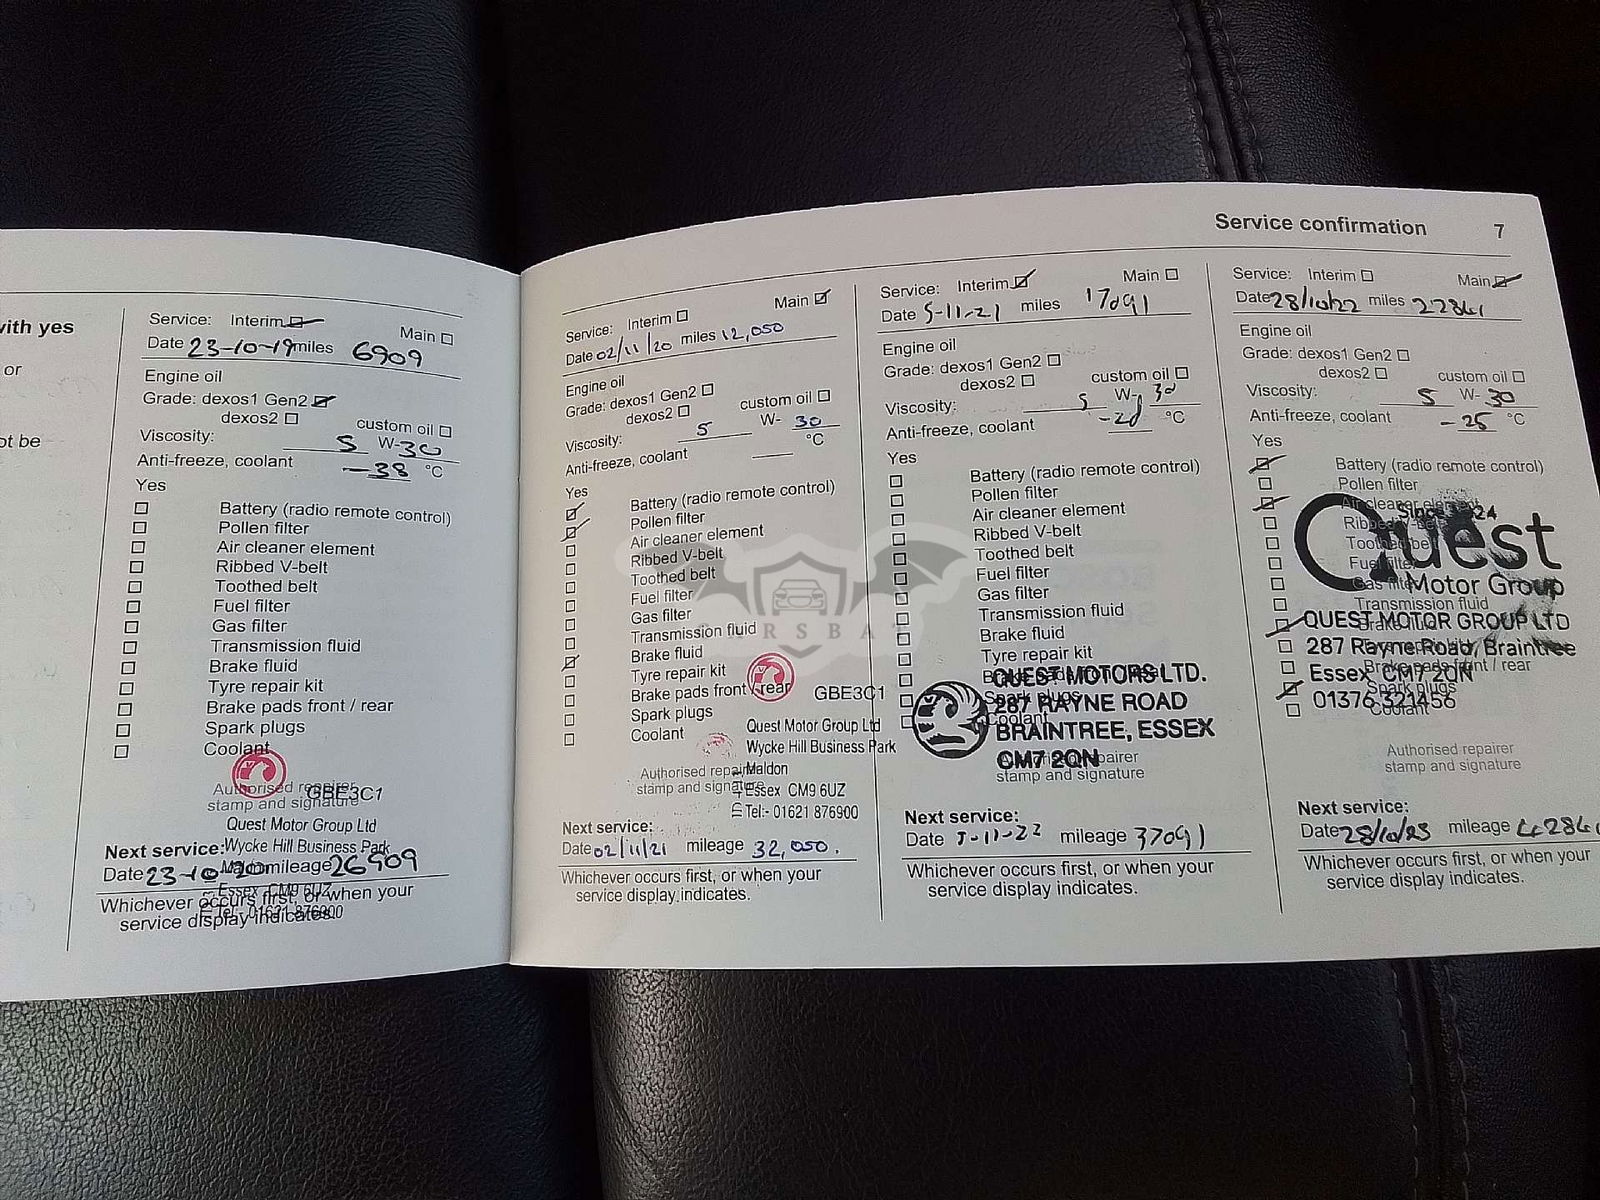 Service confirmation 7
with yes
or
ot be
Service: Interim Main
Date 23-10-19 miles 6909
Engine oil
Grade: dexos1 Gen2
dexos2 custom oil
Viscosity: 5 W-30
Anti-freeze, coolant -38 °C
Yes
Battery (radio remote control)
Pollen filter
Air cleaner element
Ribbed V-belt
Toothed belt
Fuel filter
Gas filter
Transmission fluid
Brake fluid
Tyre repair kit
Brake pads front / rear
Spark plugs
Coolant
Authorised repairer
stamp and signature
GBE3C1
Quest Motor Group Ltd
Wycke Hill Business Park
Maldon
Essex CM9 6UZ
Tel:- 01621 876900
Next service:
Date 23-10-20 mileage 26909
Whichever occurs first, or when your
service display indicates.
Service: Interim Main
Date 02/11/20 miles 12,050
Engine oil
Grade: dexos1 Gen2
dexos2 custom oil
Viscosity: 5 W- 30
Anti-freeze, coolant °C
Yes
Battery (radio remote control)
Pollen filter
Air cleaner element
Ribbed V-belt
Toothed belt
Fuel filter
Gas filter
Transmission fluid
Brake fluid
Tyre repair kit
Brake pads front / rear
Spark plugs
Coolant
GBE3C1
Quest Motor Group Ltd
Wycke Hill Business Park
Maldon
Essex CM9 6UZ
Tel:- 01621 876900
Authorised repairer
stamp and signature
Next service:
Date 02/11/21 mileage 32,050.
Whichever occurs first, or when your
service display indicates.
Service: Interim Main
Date 5-11-21 miles 17091
Engine oil
Grade: dexos1 Gen2
dexos2 custom oil
Viscosity: 5 W- 30
Anti-freeze, coolant °C
Yes
Battery (radio remote control)
Pollen filter
Air cleaner element
Ribbed V-belt
Toothed belt
Fuel filter
Gas filter
Transmission fluid
Brake fluid
Tyre repair kit
Brake pads
Spark plugs
Coolant
QUEST MOTORS LTD.
287 RAYNE ROAD
BRAINTREE, ESSEX
CM7 2QN
Authorised repairer
stamp and signature
Next service:
Date 5-11-22 mileage 37091
Whichever occurs first, or when your
service display indicates.
Service: Interim Main
Date 28/10/22 miles 22861
Engine oil
Grade: dexos1 Gen2
dexos2 custom oil
Viscosity: 5 W- 30
Anti-freeze, coolant -25 °C
Yes
Battery (radio remote control)
Pollen filter
Air cleaner element
Ribbed V-belt
Toothed belt
Fuel filter
Gas filter
Transmission fluid
Brake fluid
Tyre repair kit
Brake pads front / rear
Spark plugs
Coolant
Quest
Motor Group
QUEST MOTOR GROUP LTD
287 Rayne Road, Braintree
Essex CM7 2QN
01376 321456
Authorised repairer
stamp and signature
Next service:
Date 28/10/23 mileage
Whichever occurs first, or when your
service display indicates.
CARSBAT